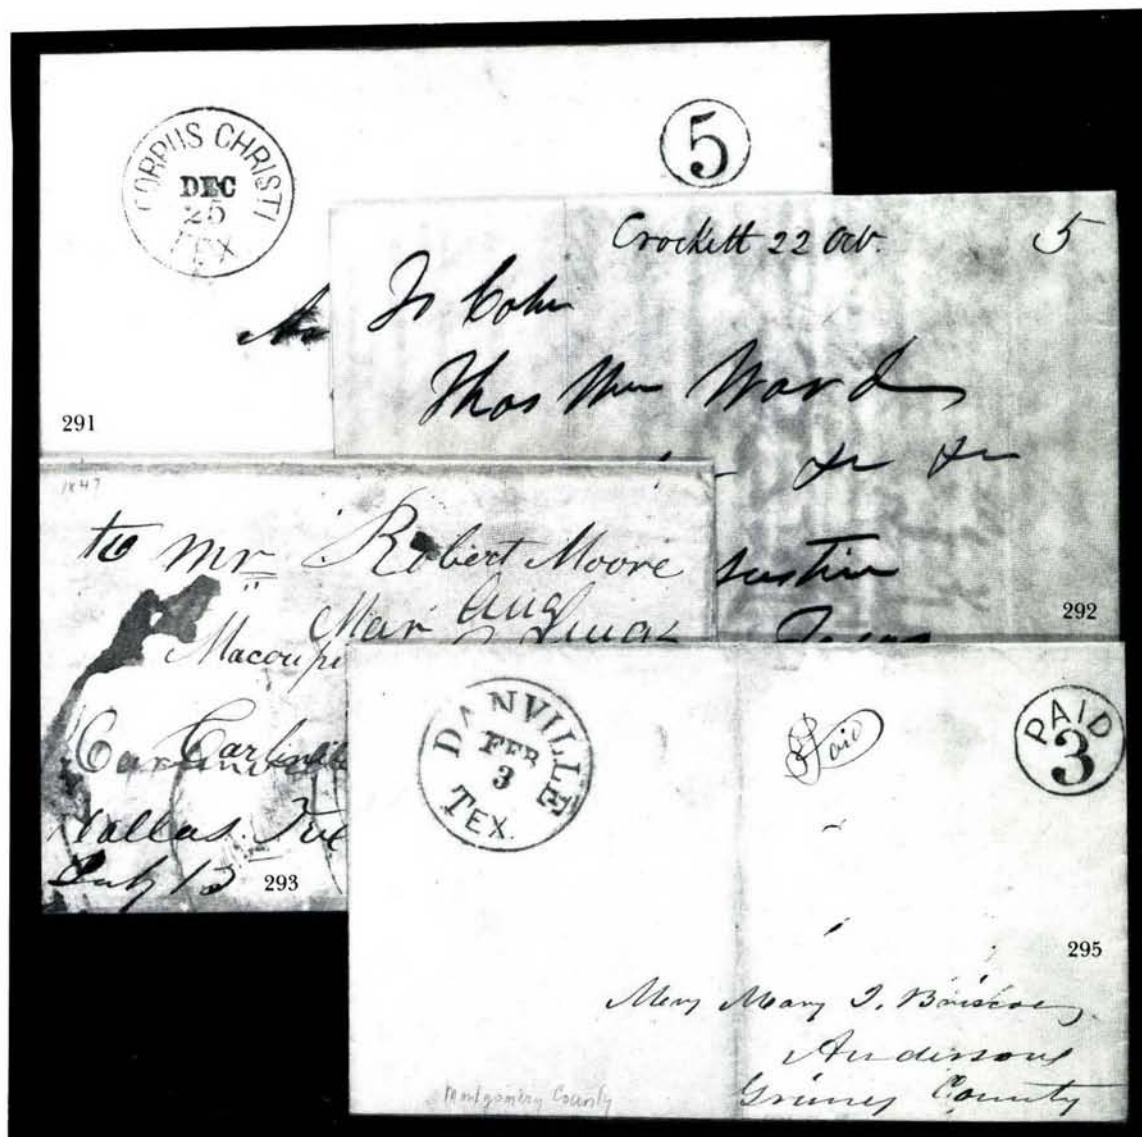 CORPUS CHRISTI
DEC
25
TEX
5
291
Crockett 22 Oct.
5
Thos Wm Ward
292
1847
to Mr Robert Moore
Aug
Mar
Macoupi
Carlinvill
Dallas
July 13
293
DANVILLE
FEB
3
TEX.
Paid
PAID
3
295
Mary Briscoe
Anderson
Grimes County
Montgomery County